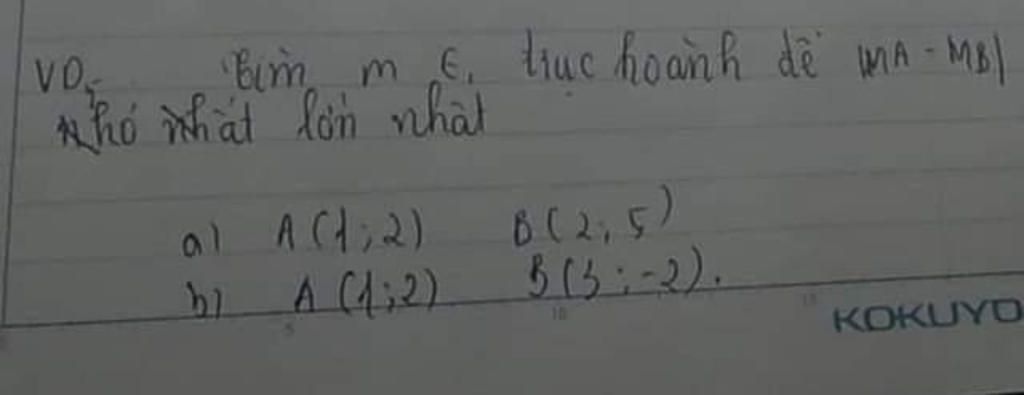 VD5 tìm m ∈ trục hoành để |MA - MB|
nhỏ nhất lớn nhất
a) A(1;2) B(2;5)
b) A(1;2) B(3;-2).
5 10 15
KOKUYO